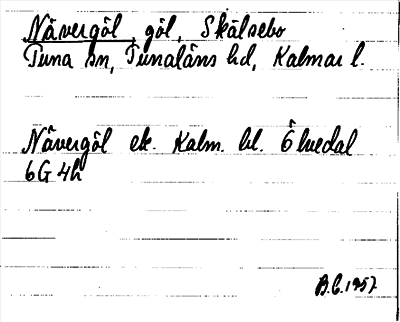 Nävergöl, göl, Skälsebo
Tuna sn, Tunaläns hd, Kalmar l.
Nävergöl ek. Kalm. bl. Ölvedal
6G 4h
B.C. 1957